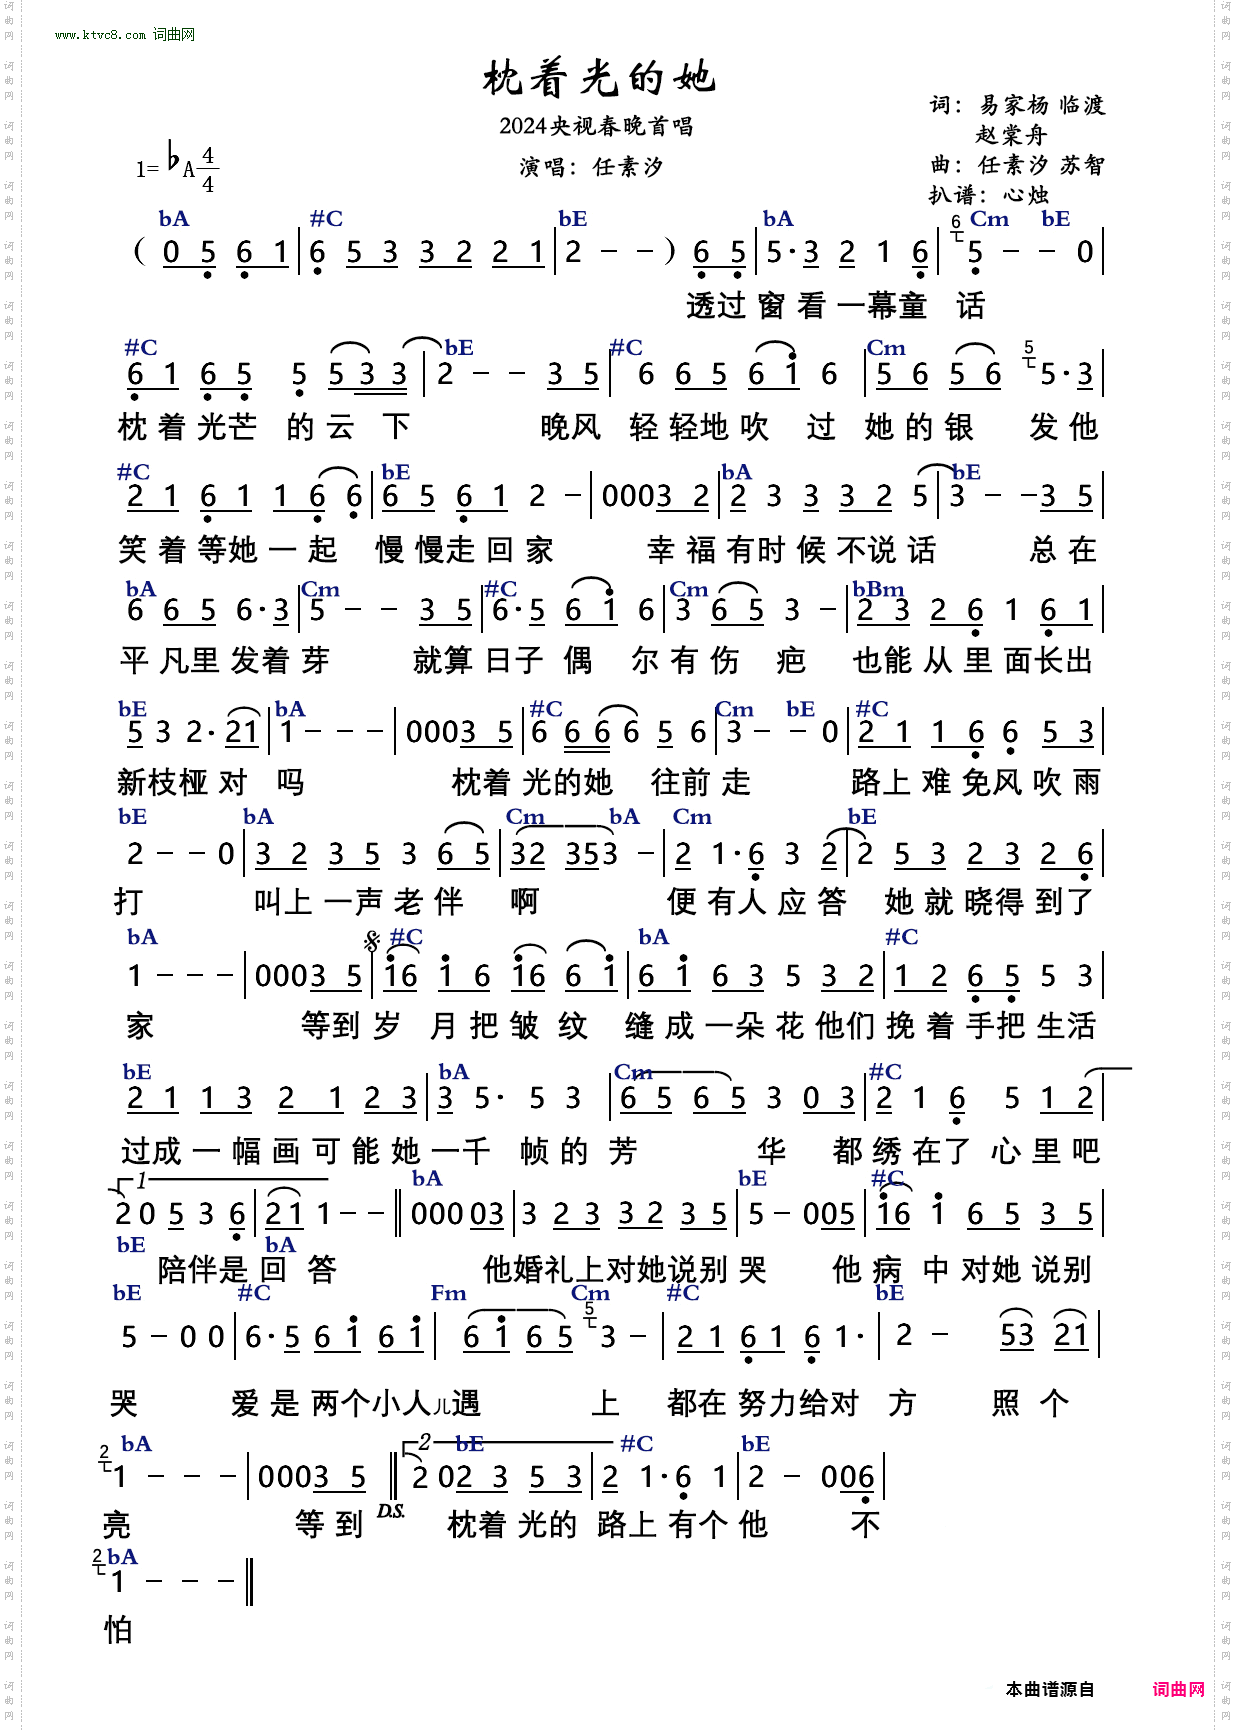 www.ktvc8.com 词曲网
枕着光的她
2024央视春晚首唱
演唱：任素汐
词：易家杨 临渡
赵棠舟
曲：任素汐 苏智
扒谱：心烛
1=bA 4/4
bA #C bE bA Cm bE
（0 5 6 1 | 6 5 3 3 2 2 1 | 2 - - ）6 5 | 5·3 2 1 6 | 6 5 - - 0 |
透过窗看一幕童 话
#C bE #C Cm
6 1 6 5 5 5 3 3 | 2 - - 3 5 | 6 6 5 6 1 6 | 5 6 5 6 5 5·3
枕着光芒 的云 下 晚风 轻轻地吹 过 她的银 发他
#C bE bA bE
2 1 6 1 1 6 6 | 6 5 6 1 2 - | 0003 2 | 2 3 3 3 2 5 | 3 - -3 5 |
笑着等她一起 慢慢走回家 幸福有时候不说话 总在
bA Cm #C Cm bBm
6 6 5 6·3 | 5 - - 3 5 | 6·5 6 1 6 | 3 6 5 3 - | 2 3 2 6 1 6 1 |
平凡里发着芽 就算日子偶 尔有伤 疤 也能从里面长出
bE bA #C Cm bE #C
5 3 2·21 | 1 - - - | 0003 5 | 6 6 6 6 5 6 | 3 - - 0 | 2 1 1 6 6 5 3 |
新枝桠对 吗 枕着光的她 往前走 路上难免风吹雨
bE bA Cm bA Cm bE
2 - - 0 | 3 2 3 5 3 6 5 | 32 353 - | 2 1·6 3 2 | 2 5 3 2 3 2 6 |
打 叫上一声老伴 啊 便有人应答 她就晓得到了
bA #C bA #C
1 - - - | 0003 5 | 16 1 6 16 6 1 | 6 1 6 3 5 3 2 | 1 2 6 5 5 3 |
家 等到岁 月把皱纹 缝成一朵花他们挽着手把生活
bE bA Cm #C
2 1 1 3 2 1 2 3 | 3 5· 5 3 | 6 5 6 5 3 0 3 | 2 1 6 5 1 2 |
过成一幅画可能她一千 帧的芳 华 都绣在了心里吧
1 bA bE #C
2 0 5 3 6 | 2 1 1 - - ‖ 000 03 | 3 2 3 3 2 3 5 | 5 - 005 | 16 1 6 5 3 5 |
bE bA
陪伴是回 答 他婚礼上对她说别哭 他病 中对她说别
bE #C Fm Cm #C bE
5 - 0 0 | 6·5 6 1 6 1 | 6 1 6 5 5 3 - | 2 1 6 1 6 1· | 2 - 53 21 |
哭 爱是两个小人儿遇 上 都在努力给对 方 照个
bA 2 bE #C bE
2 1 - - - | 0003 5 ‖ 2 02 3 5 3 | 2 1·6 1 | 2 - 006 |
D.S.
亮 等到 枕着光的 路上有个他 不
bA
2 1 - - - ‖
怕
本曲谱源自 词曲网